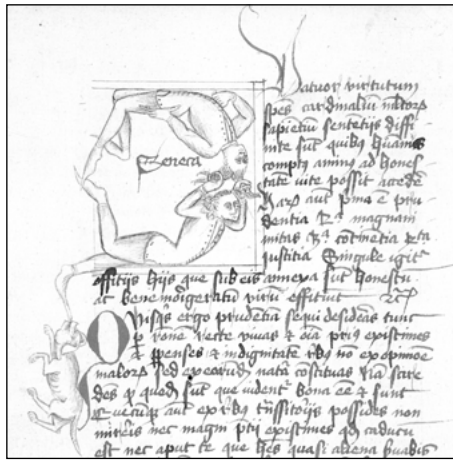 Seneca
atuor virtutum
spēs cardinaliū mltorꝫ
sapiētiū sentētijs diffi
nite sūt quibꝫ hūanus
comptꝰ animꝰ ad hones
tatē vite possit accedē
Harꝫ aut pͥma ē pru
dentia 2ª magnani
mitas 3ª cōtinētia 4ta
justitia Singule igit
offitijs hijs que sub eis annexa sūt honestū
ac bene virū effitiūt
ergo prudētiā sequi desideās tunc
rone recte vivas et oīa prius existimes
et ppenses et dignitatē rebꝫ no ex opinioē
malorꝫ sed ex earūdꝫ natā costituas Nā scire
des qꝫ quedā sūt que videntʳ bona eē et sunt
possides non
mireris nec magni ptij existimes qd caducū
est nec aput te que hēs quasi aliena suabis